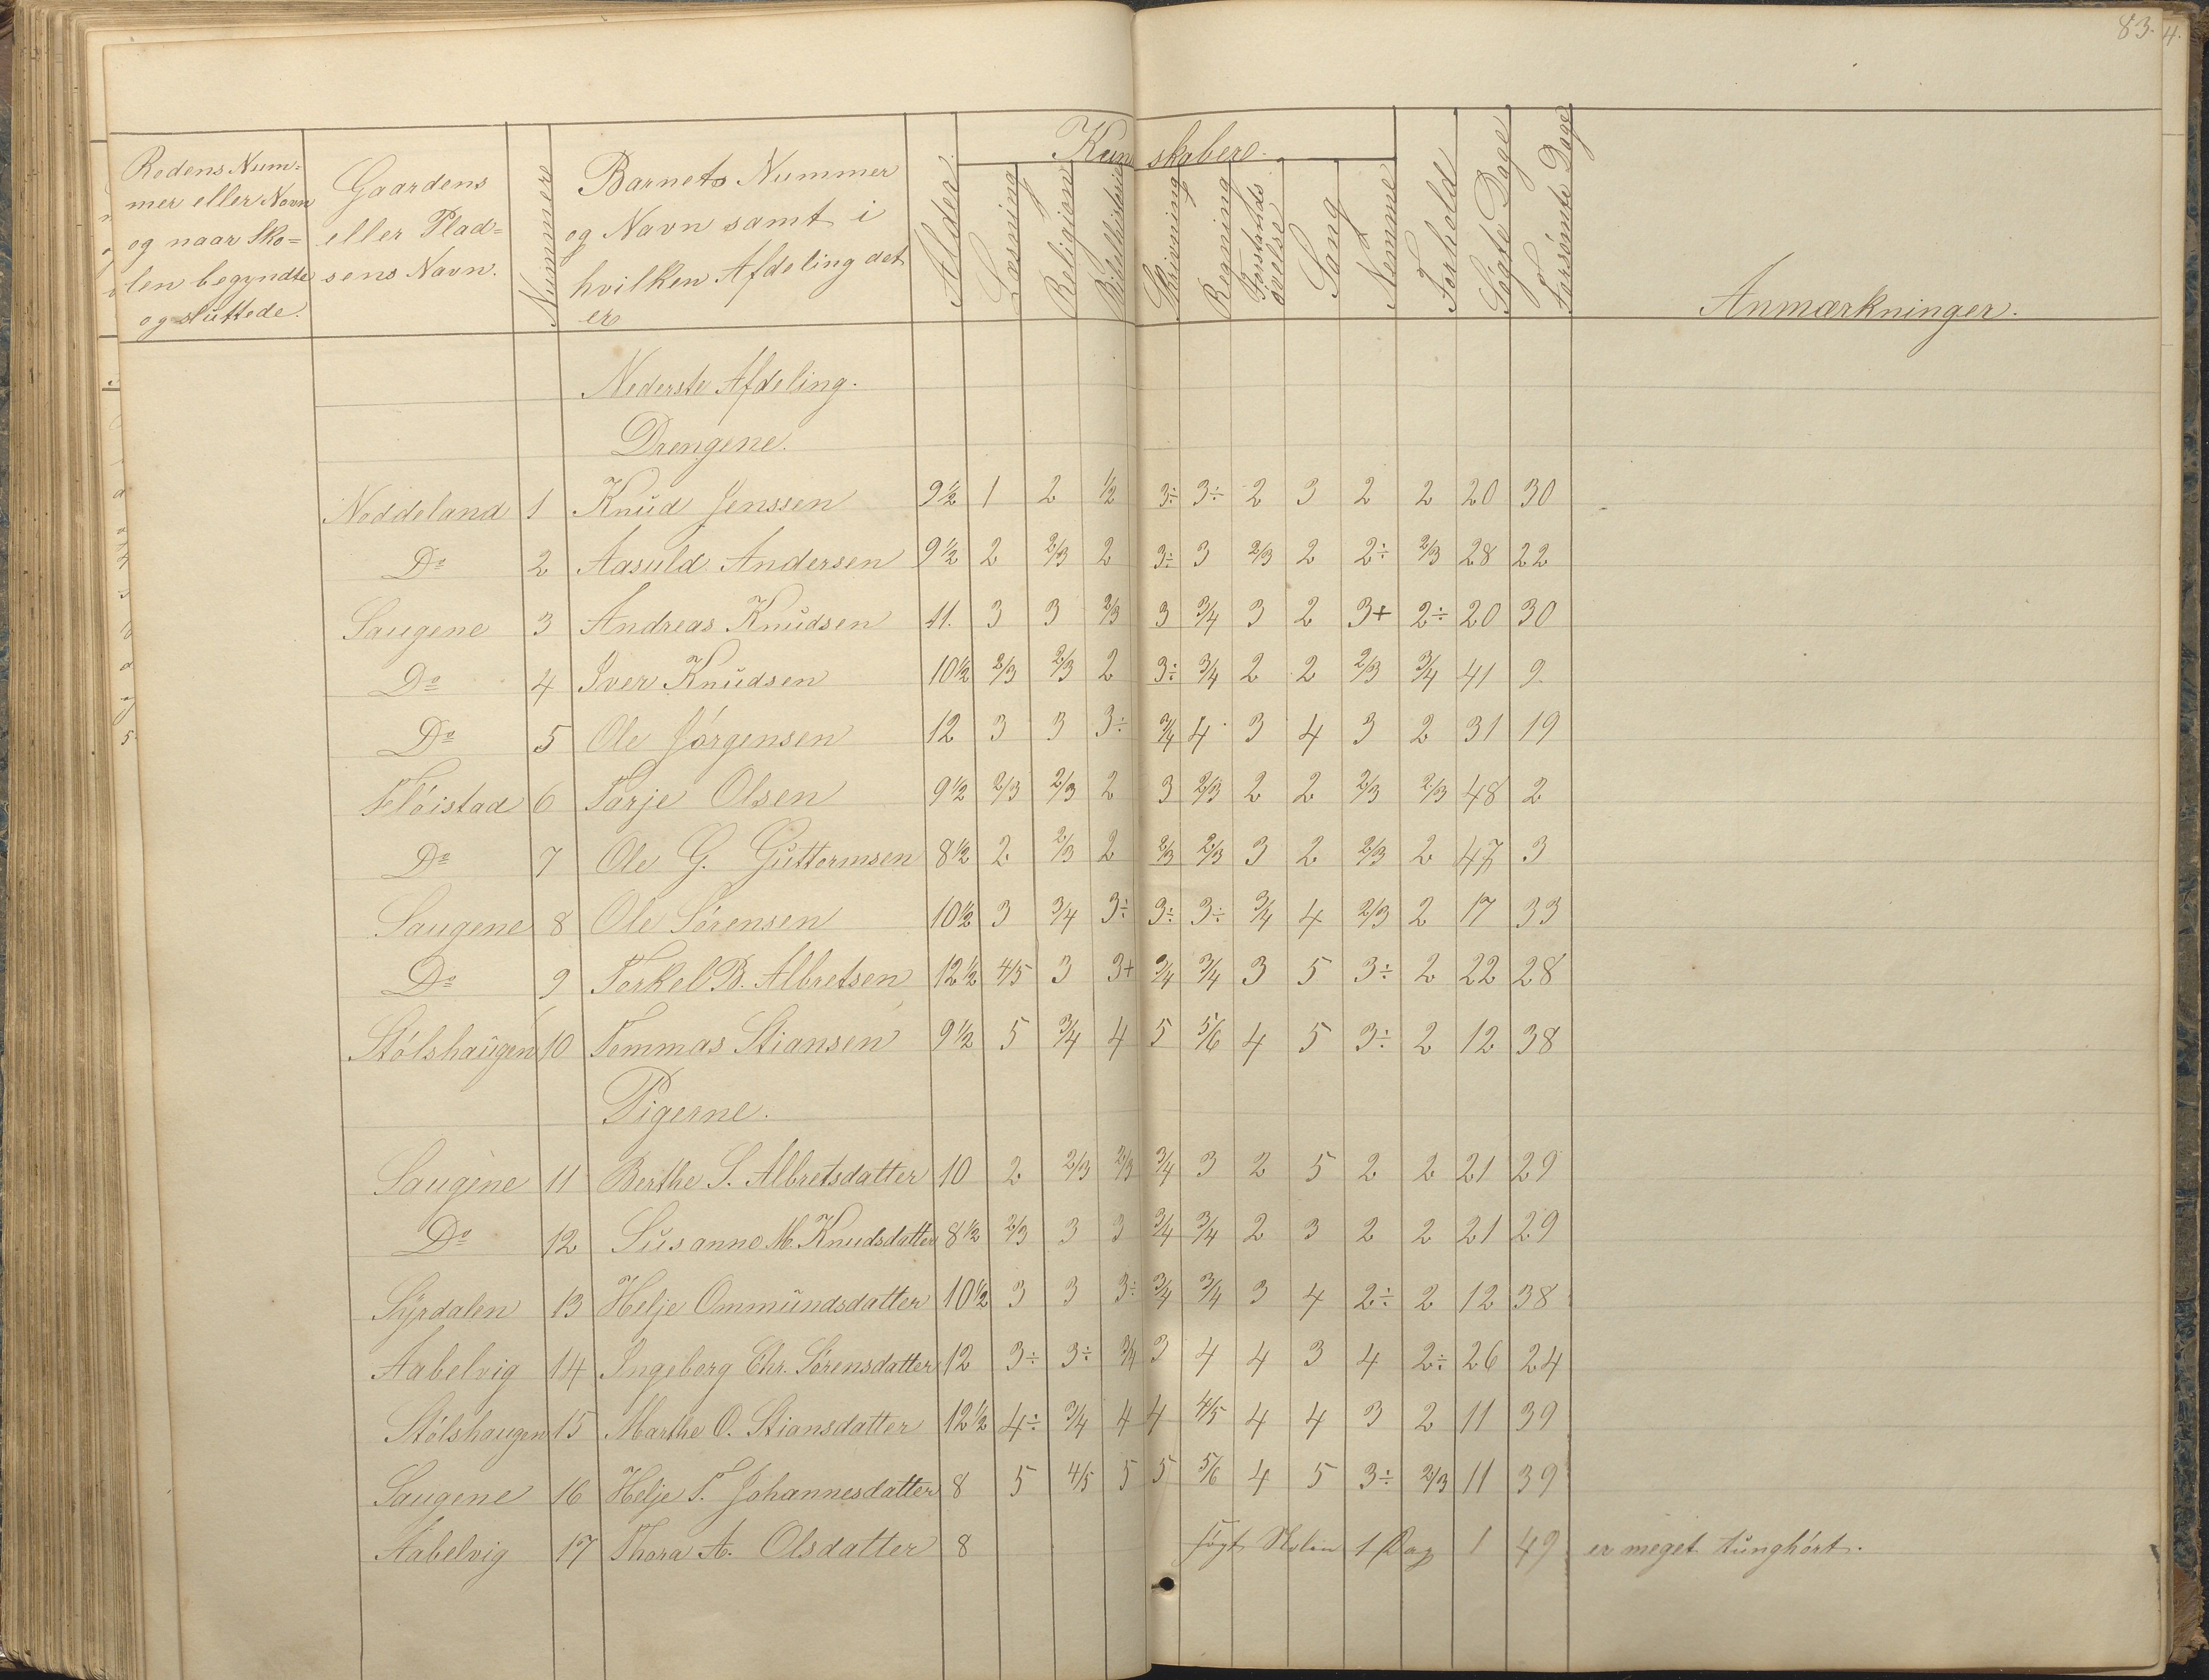 83.
4.
Rodens Num-
mer eller Navn
og naar Sko-
len begyndte
og sluttede.
Gaardens
eller Plad-
sens Navn.
Nummere
Barnets Nummer
og Navn samt i
hvilken Afdeling det
er
Alder.
Kundskaber.
Læsning
Religion
Bibelhistorie
Skrivning
Regning
Forstands
øvelse
Sang
Nemme
Forhold
Søgte Dage
Forsømte Dage
Anmærkninger.
Nederste Afdeling.
Drengene.
Noddeland 1 Knud Jenssen 9½ 1 2 ½ 3÷ 3÷ 2 3 2 2 20 30
Do 2 Aasuld Andersen 9½ 2 2/3 2 3÷ 3 2/3 2 2÷ 2/3 28 22
Saugene 3 Andreas Knudsen 11. 3 3 2/3 3 3/4 3 2 3+ 2÷ 20 30
Do 4 Iver Knudsen 10½ 2/3 2/3 2 3÷ 3/4 2 2 2/3 3/4 41 9
Do 5 Ole Jórgensen 12 3 3 3÷ 3/4 4 3 4 3 2 31 19
Flóistad 6 Tarje Olsen 9½ 2/3 2/3 2 3 2/3 2 2 2/3 2/3 48 2
Do 7 Ole G. Guttormsen 8½ 2 2/3 2 2/3 2/3 3 2 2/3 2 47 3
Saugene 8 Ole Sórensen 10½ 3 3/4 3÷ 3÷ 3÷ 3/4 4 2/3 2 17 33
Do 9 Torkel B. Albretsen 12½ 4/5 3 3+ 3/4 3/4 3 5 3÷ 2 22 28
Stólshaugen 10 Tommas Stiansen 9½ 5 3/4 4 5 5/6 4 5 3÷ 2 12 38
Pigerne.
Saugene 11 Berthe S. Albretsdatter 10 2 2/3 2/3 3/4 3 2 5 2 2 21 29
Do 12 Susanne M. Knudsdatter 8½ 2/3 3 3 3/4 3/4 2 3 2 2 21 29
Syrdalen 13 Helje Ommundsdatter 10½ 3 3 3÷ 3/4 3/4 3 4 2÷ 2 12 38
Aabelvig 14 Ingeborg Chr. Sórensdatter 12 3÷ 3÷ 3/4 3 4 4 3 4 2÷ 26 24
Stólshaugen 15 Marthe O. Stiansdatter 12½ 4÷ 3/4 4 4 4/5 4 4 3 2 11 39
Saugene 16 Helje T. Johannesdatter 8 5 4/5 5 5 5/6 4 5 3÷ 2/3 11 39
Aabelvig 17 Thora A. Olsdatter 8 søgt Skolen 1 Dag 1 49 er meget tunghórt.